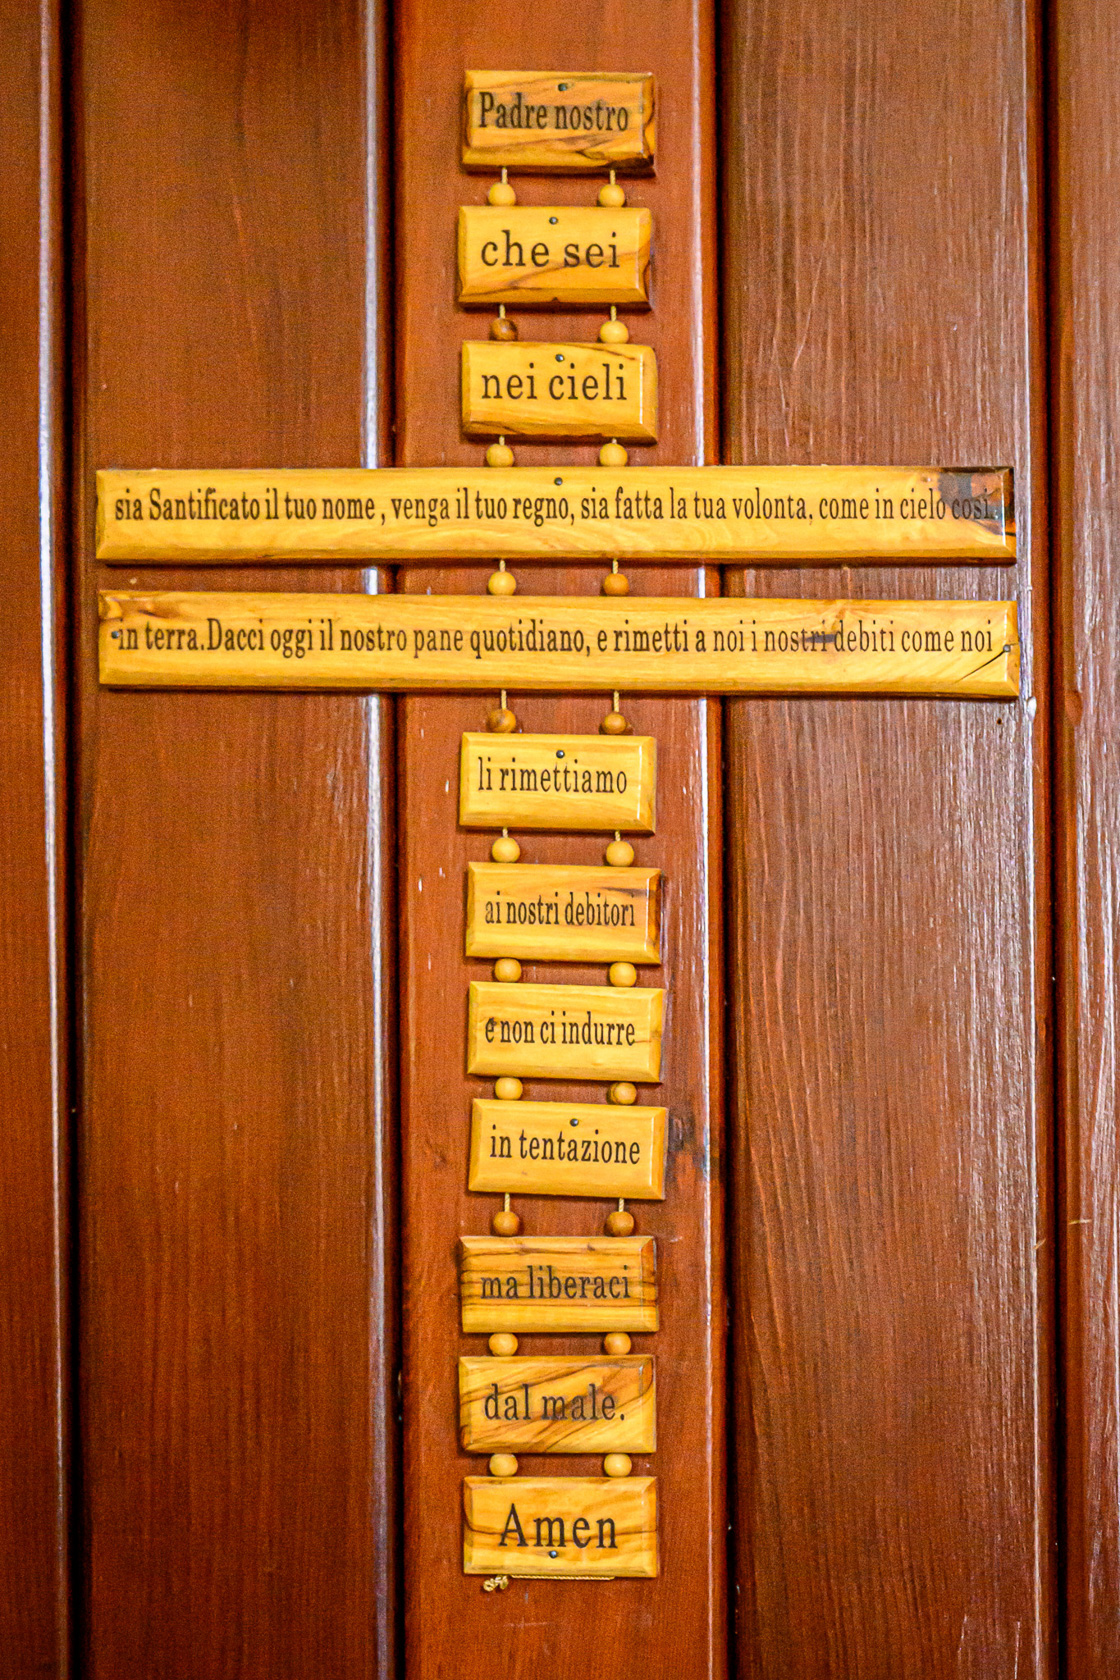 Padre nostro
che sei
nei cieli
sia Santificato il tuo nome, venga il tuo regno, sia fatta la tua volonta, come in cielo cosi
in terra. Dacci oggi il nostro pane quotidiano, e rimetti a noi i nostri debiti come noi
li rimettiamo
ai nostri debitori
e non ci indurre
in tentazione
ma liberaci
dal male.
Amen